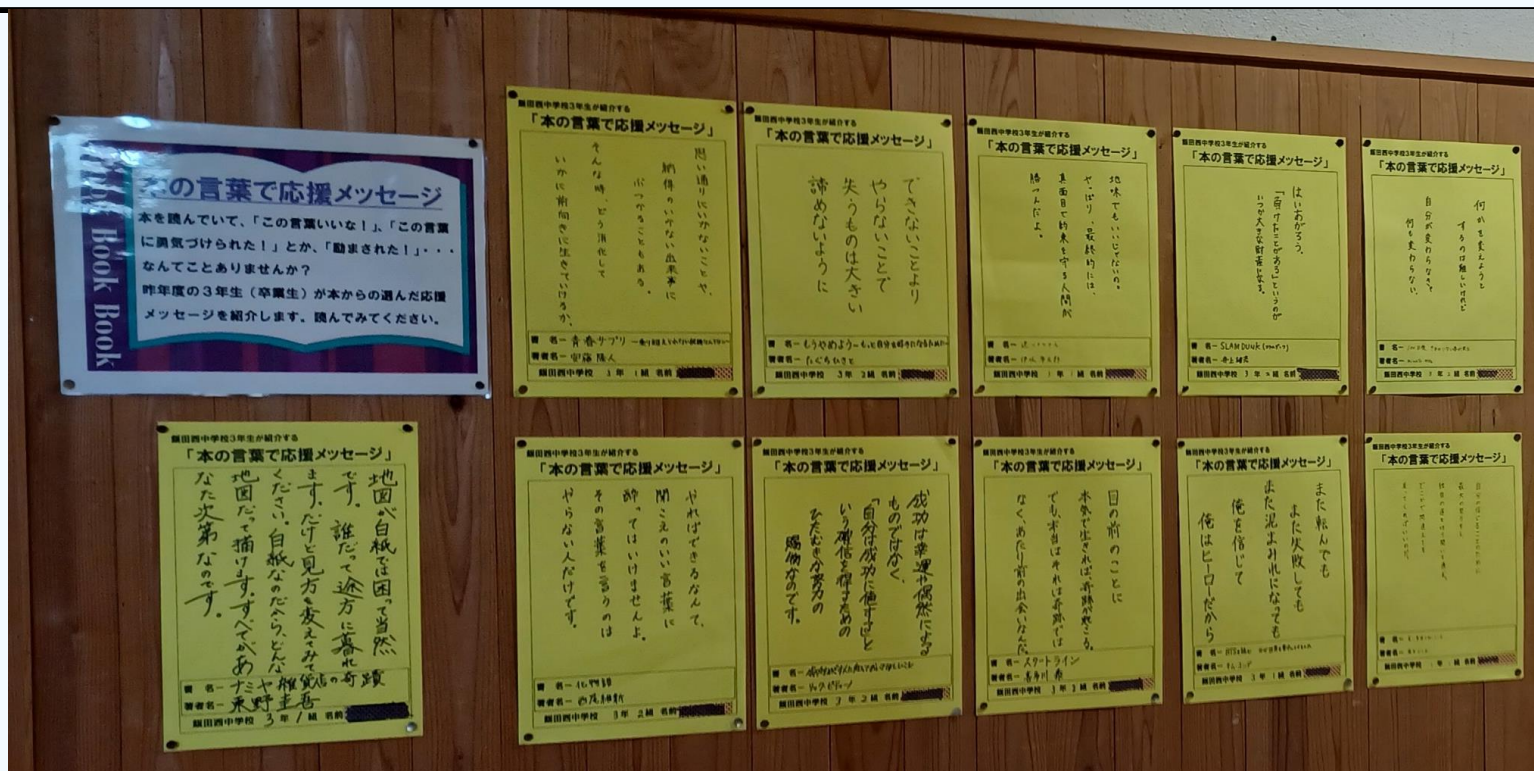 本の言葉で応援メッセージ
本を読んでいて、「この言葉いいな！」、「この言葉
に勇気づけられた！」とか、「励まされた！」・・・
なんてことありませんか？
昨年度の３年生（卒業生）が本からの選んだ応援
メッセージを紹介します。読んでみてください。
Book Book
飯田西中学校3年生が紹介する
「本の言葉で応援メッセージ」
思い通りにいかないことや、
納得のいかない出来事に
ぶつかることもある。
そんな時、どう消化して
いかに前向きに生きていけるか、
書 名－ 青春サプリ
著者名－
飯田西中学校 3年 1組 名前
飯田西中学校3年生が紹介する
「本の言葉で応援メッセージ」
できないことより
やらないことで
失うものは大きい
諦めないように
書 名－ もうやめよう
著者名－ たぐちひさと
飯田西中学校 3年 2組 名前
飯田西中学校3年生が紹介する
「本の言葉で応援メッセージ」
地味でもいいじゃないの。
やっぱり、最終的には、
真面目で約束を守る人間が
勝つんだよ。
書 名－
著者名－
飯田西中学校 組 名前
飯田西中学校3年生が紹介する
「本の言葉で応援メッセージ」
はいあがろう。
「負けたことがある」というのが
いつか大きな財産になる。
書 名－ SLAM DUNK
著者名－ 井上雄彦
飯田西中学校 3年 組 名前
飯田西中学校3年生が紹介する
「本の言葉で応援メッセージ」
何かを変えようと
するのは難しいけれど
自分が変わらなきゃ
何も変わらない。
書 名－
著者名－
飯田西中学校 組 名前
飯田西中学校3年生が紹介する
「本の言葉で応援メッセージ」
地図が白紙では困って当然
です。誰だって途方に暮れ
ます。だけど見方を変えてみて
ください。白紙なのだから、どんな
地図だって描けます。すべてがあ
なた次第なのです。
書 名－ ナミヤ雑貨店の奇蹟
著者名－ 東野圭吾
飯田西中学校 3年 1組 名前
飯田西中学校3年生が紹介する
「本の言葉で応援メッセージ」
やればできるなんて、
聞こえのいい言葉に
酔ってはいけませんよ。
その言葉を言うのは
やらない人だけです。
書 名－ 化物語
著者名－ 西尾維新
飯田西中学校 3年 2組 名前
飯田西中学校3年生が紹介する
「本の言葉で応援メッセージ」
成功は幸運や偶然による
ものではなく、
「自分は成功に値する」と
いう確信を得るための
ひたむきな努力の
賜物なのです。
書 名－
著者名－
飯田西中学校 3年 2組 名前
飯田西中学校3年生が紹介する
「本の言葉で応援メッセージ」
目の前のことに
本気で生きれば、奇跡が起こる。
でも、本当はそれは奇跡では
なく、あたり前の出会いなんだ
書 名－ スタートライン
著者名－ 喜多川泰
飯田西中学校 3年 組 名前
飯田西中学校3年生が紹介する
「本の言葉で応援メッセージ」
また転んでも
また失敗しても
また泥まみれになっても
俺を信じて
俺はヒーローだから
書 名－
著者名－
飯田西中学校 3年 1組 名前
飯田西中学校3年生が紹介する
「本の言葉で応援メッセージ」
書 名－
著者名－
飯田西中学校 組 名前